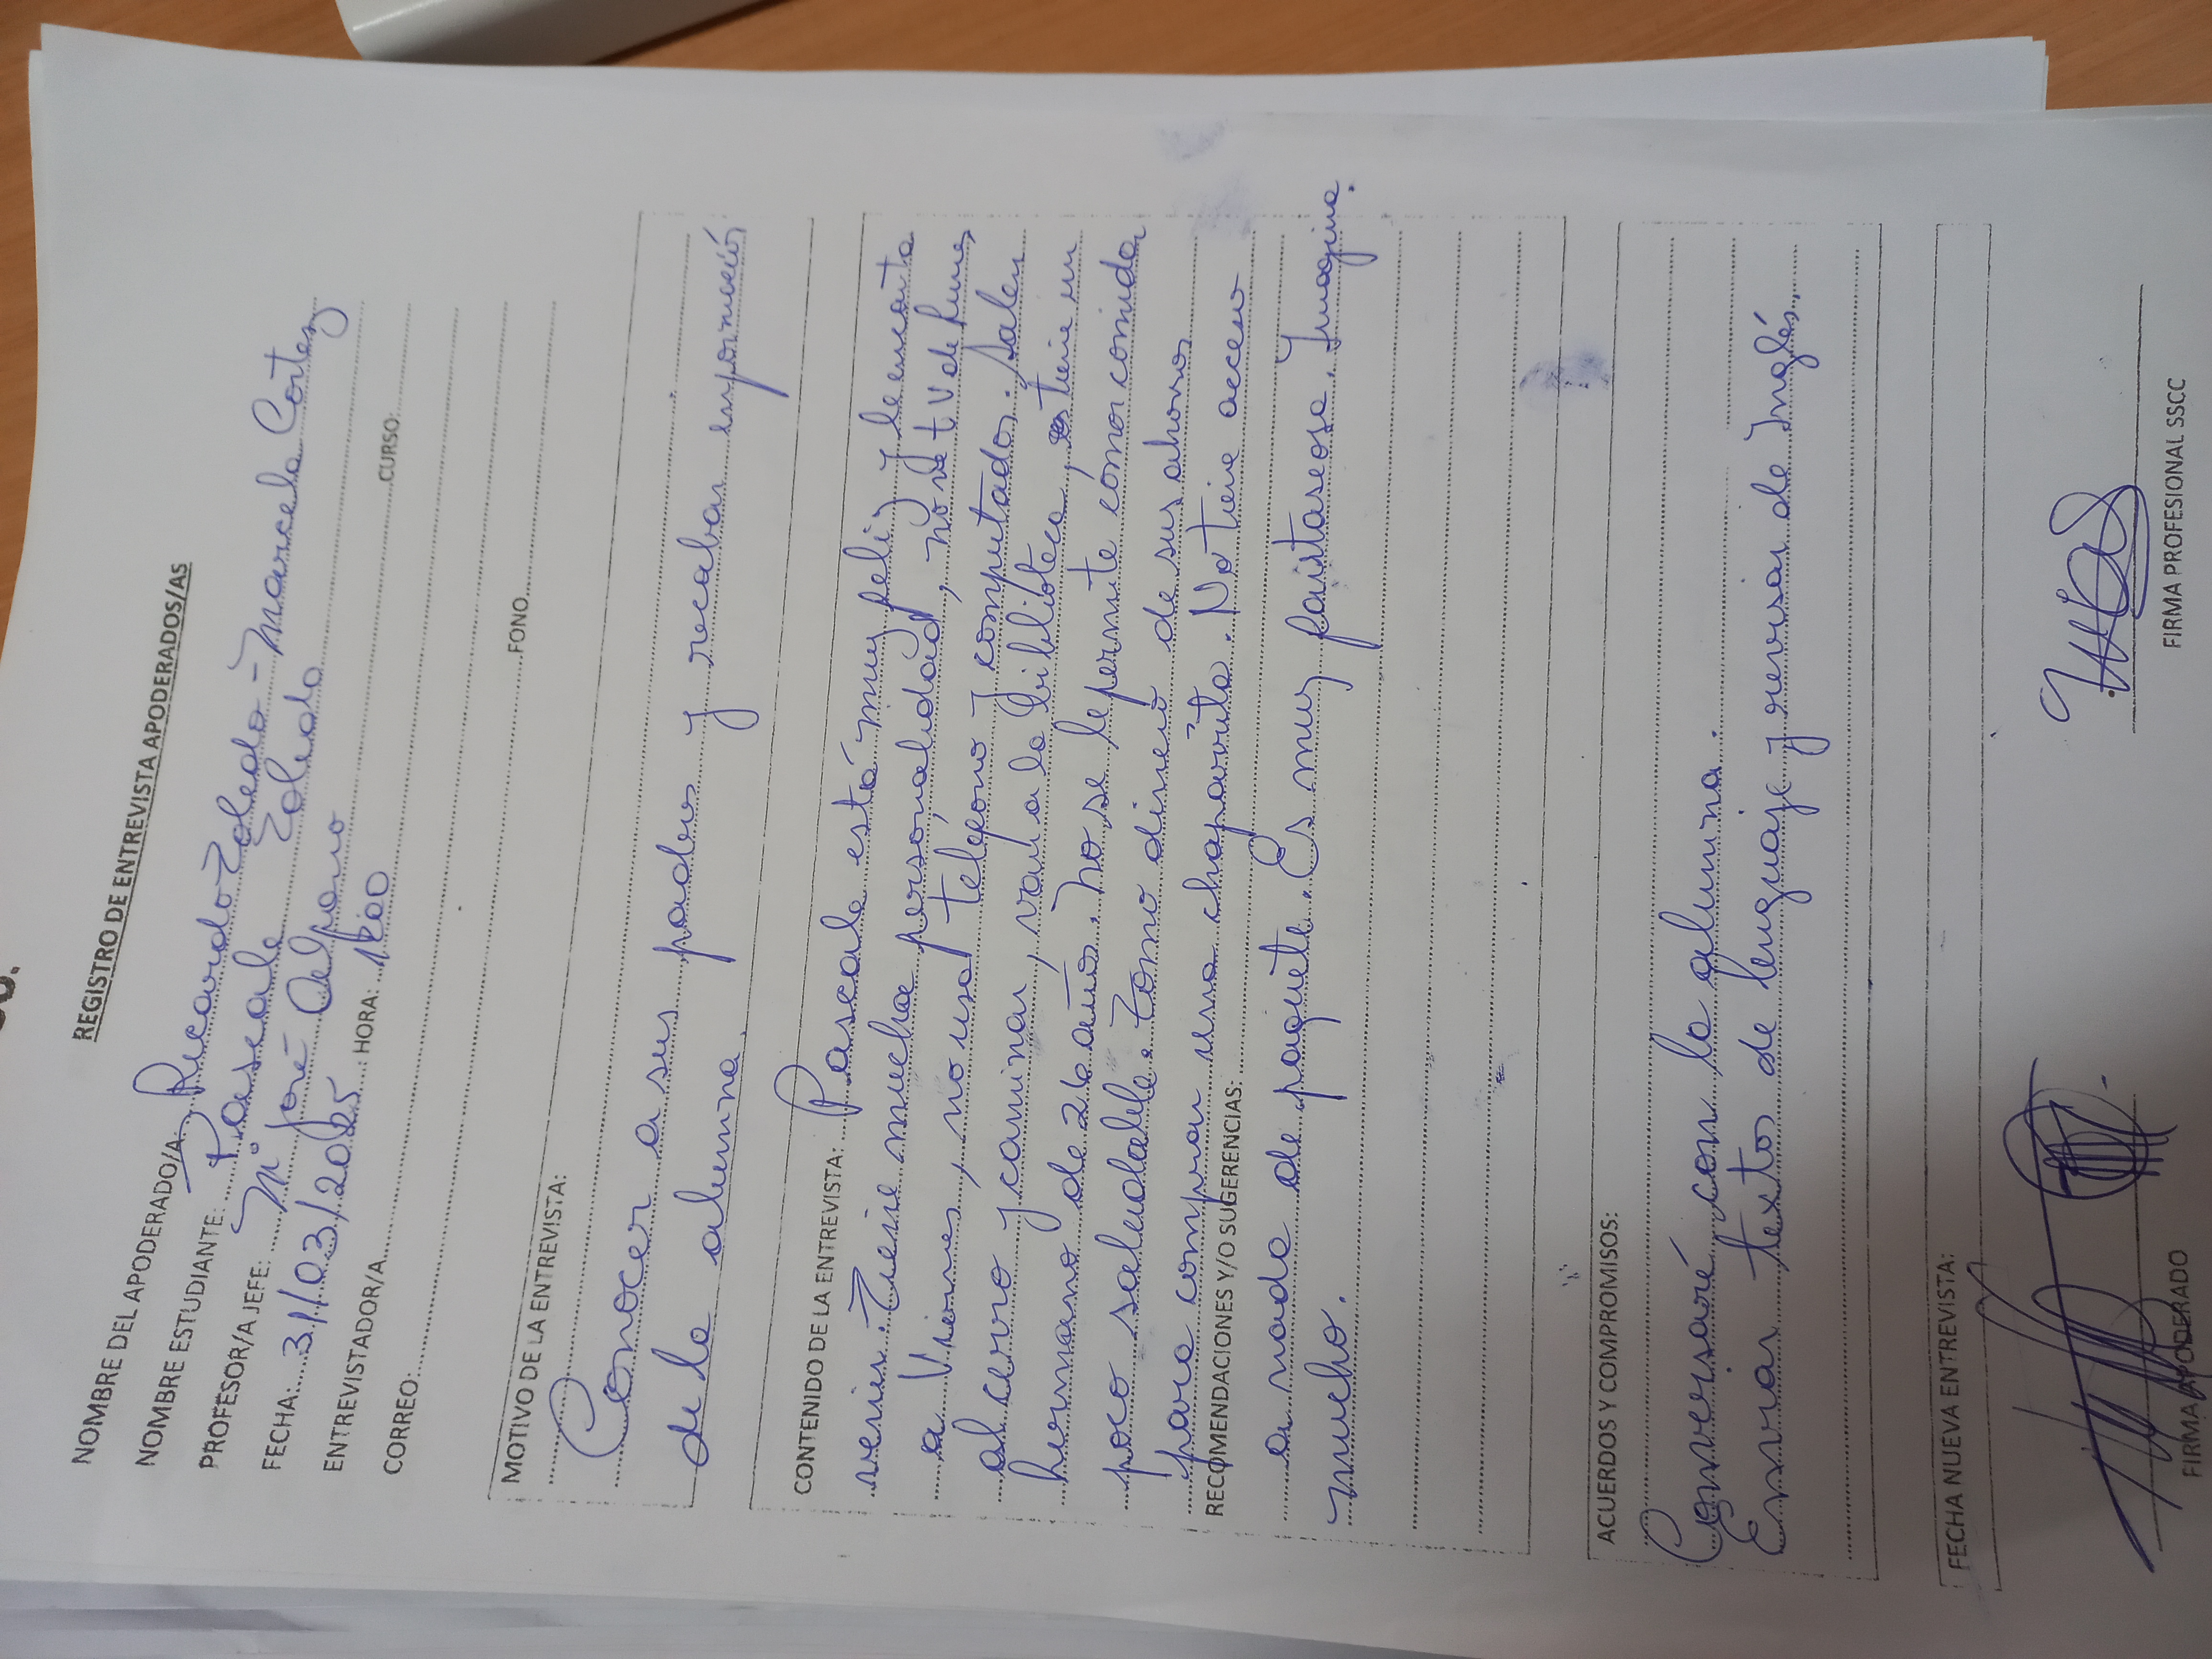 REGISTRO DE ENTREVISTA APODERADOS/AS
NOMBRE DEL APODERADO/A: Ricardo Toledo - Marcela Cortez
NOMBRE ESTUDIANTE: Pascale Toledo
PROFESOR/A JEFE: Mª José
FECHA: 31/03/2025 HORA:
ENTREVISTADOR/A CURSO:
CORREO: FONO
MOTIVO DE LA ENTREVISTA:
Conocer a sus padres y recabar información
de la alumna.
CONTENIDO DE LA ENTREVISTA: Pascale está muy feliz y le encanta
venir. Tiene mucha personalidad, no ve tv de lunes
a Viernes, no usa teléfono y computador. Salen
al cerro y caminar, van a la biblioteca, tiene un
hermano de 26 años. No se le permite comer comida
poco saludable. Tomó dinero de sus ahorros
para comprar una chaparrita. No tiene acceso
RECOMENDACIONES Y/O SUGERENCIAS:
a nada de paquete. Es muy fantaseosa. Imagina
mucho.
ACUERDOS Y COMPROMISOS:
Conversaré con la alumna.
Enviar textos de lenguaje y revisar de Inglés.
FECHA NUEVA ENTREVISTA:
FIRMA APODERADO FIRMA PROFESIONAL SSCC